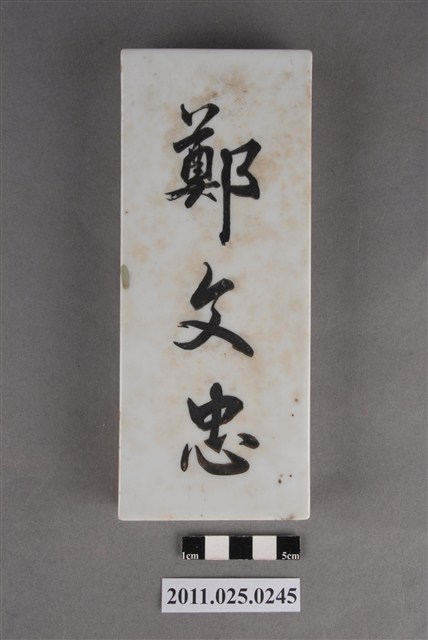 鄭文忠
1cm 5cm
2011.025.0245